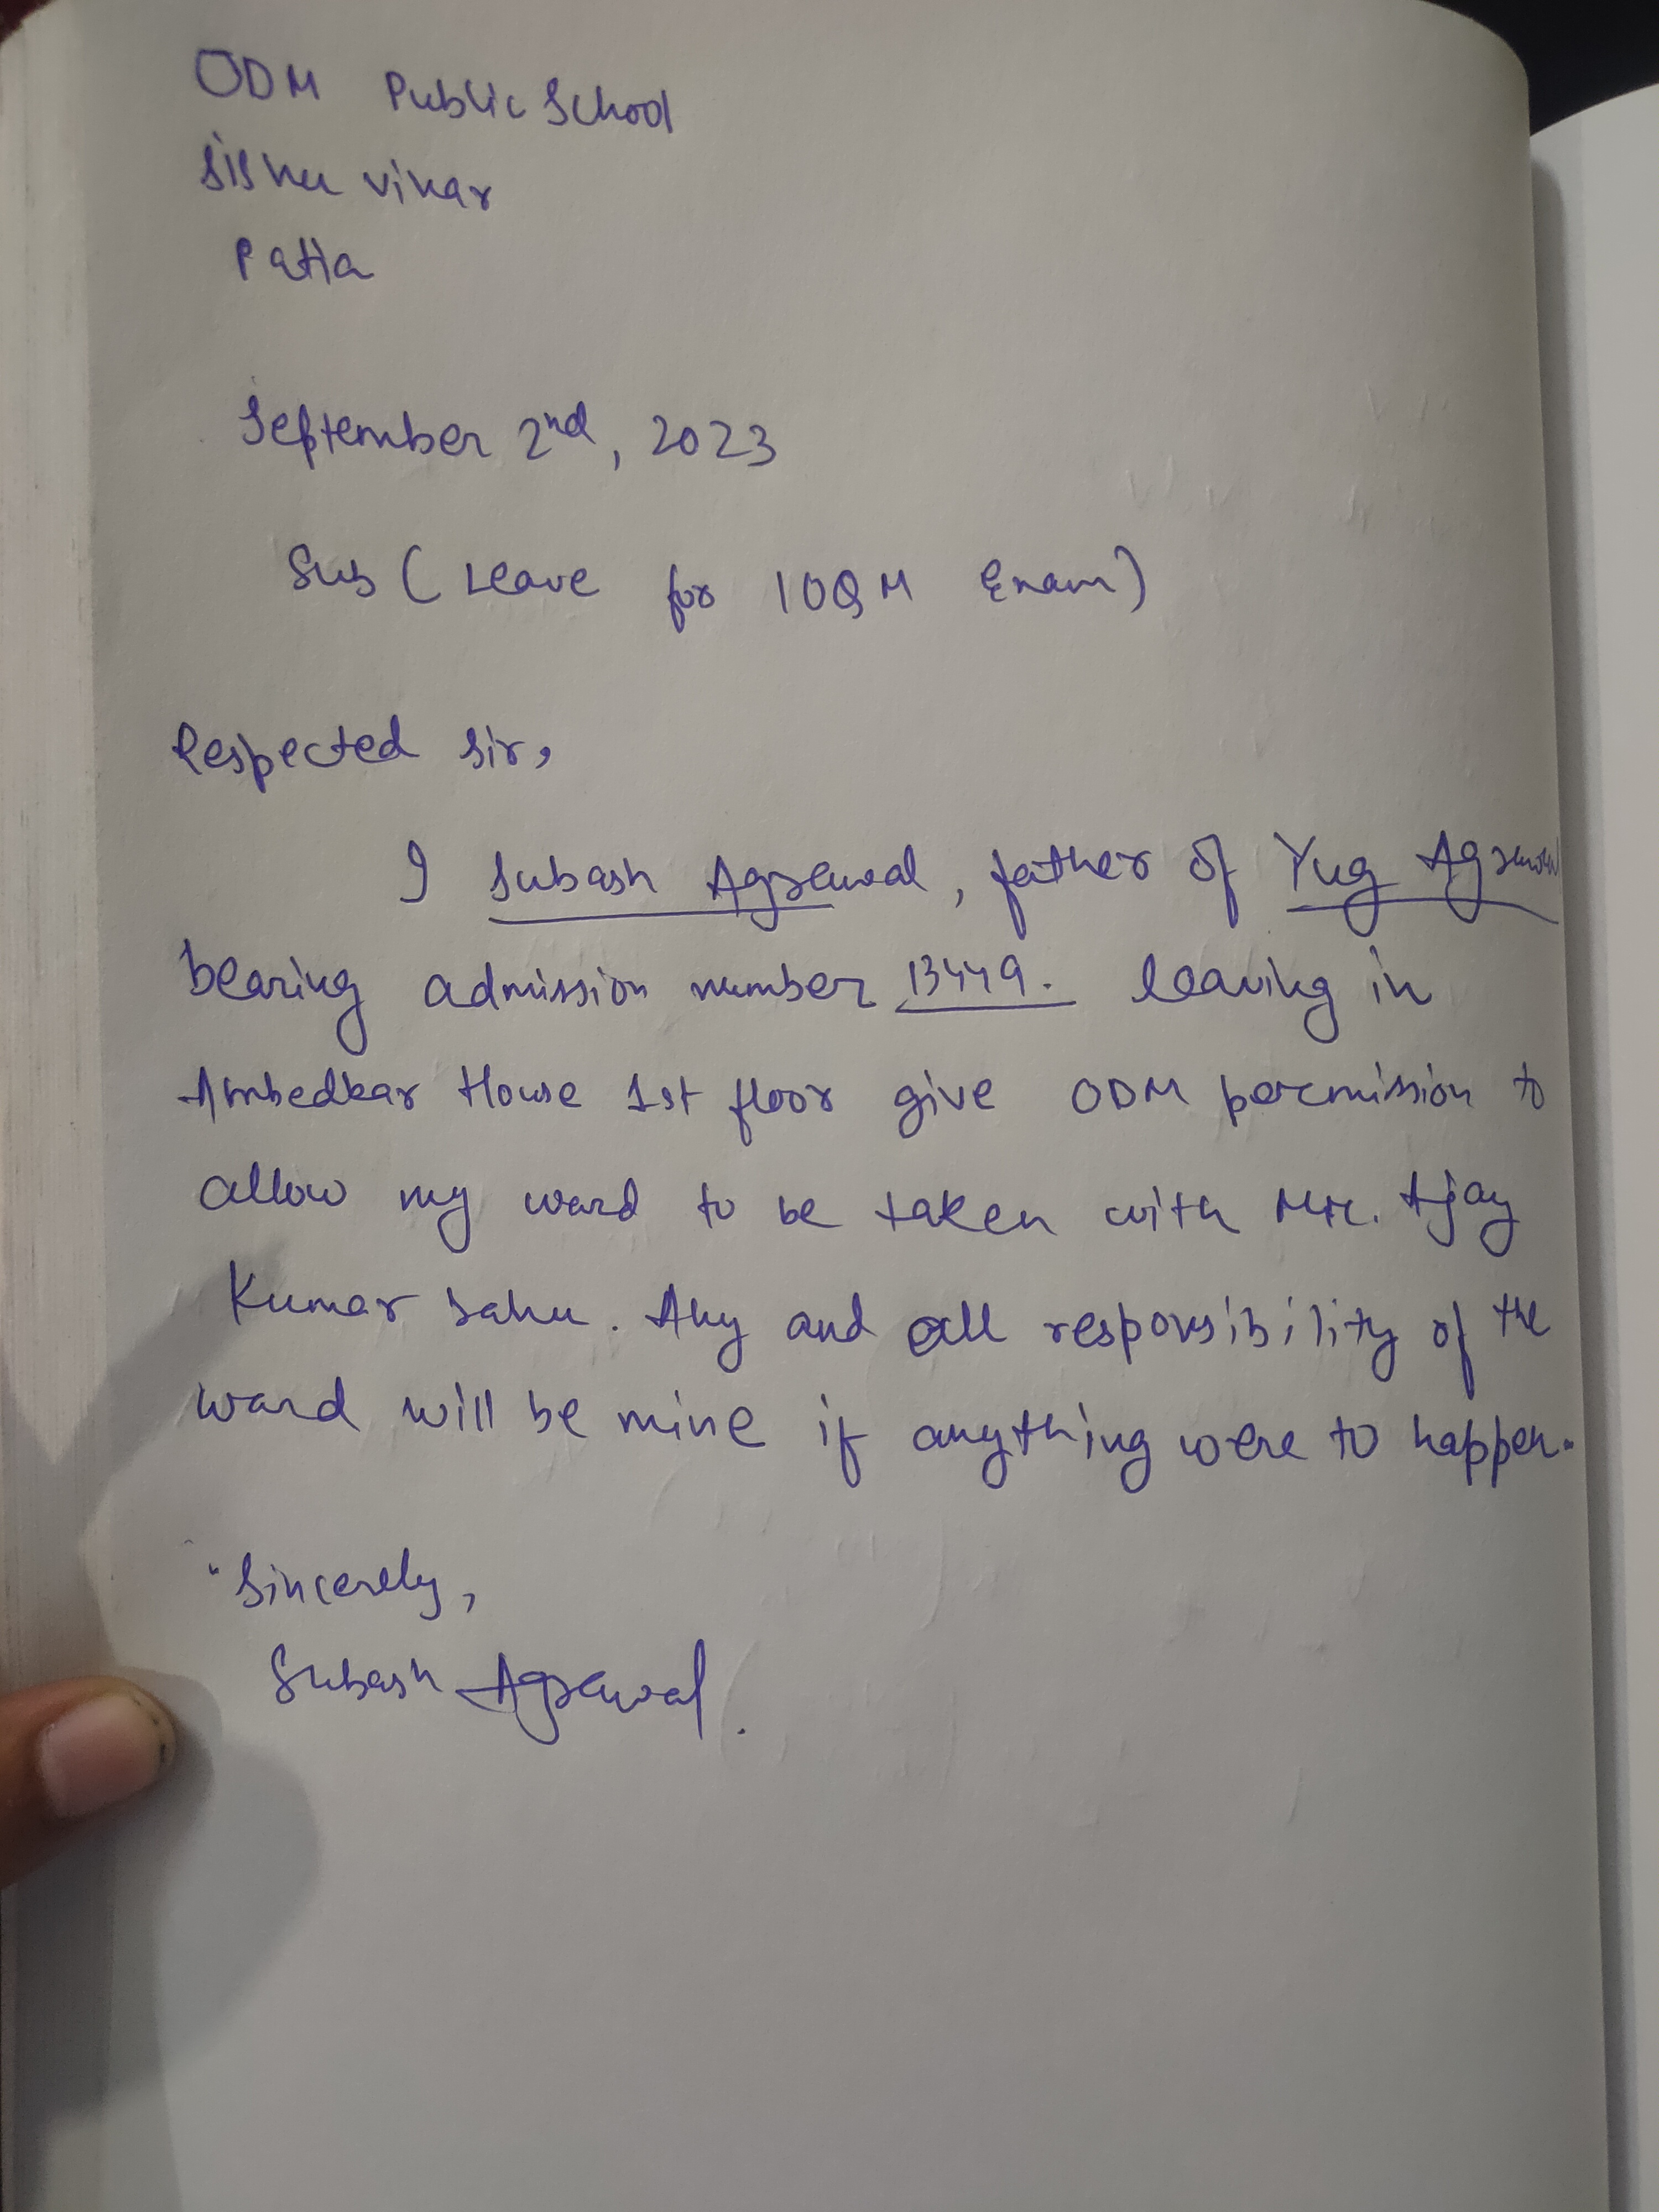 ODM Public School
Sishu vihar
Patia
September 2nd, 2023
Sub (Leave for IOQM Exam)
Respected Sir,
I Subash Agrawal, father of Yug Agrawal
bearing admission number 13449. leaving in
Ambedkar House 1st floor give ODM permission to
allow my ward to be taken with Mr. Ajay
Kumar Sahu. Any and all responsibility of the
ward will be mine if anything were to happen.
Sincerely,
Subash Agrawal.